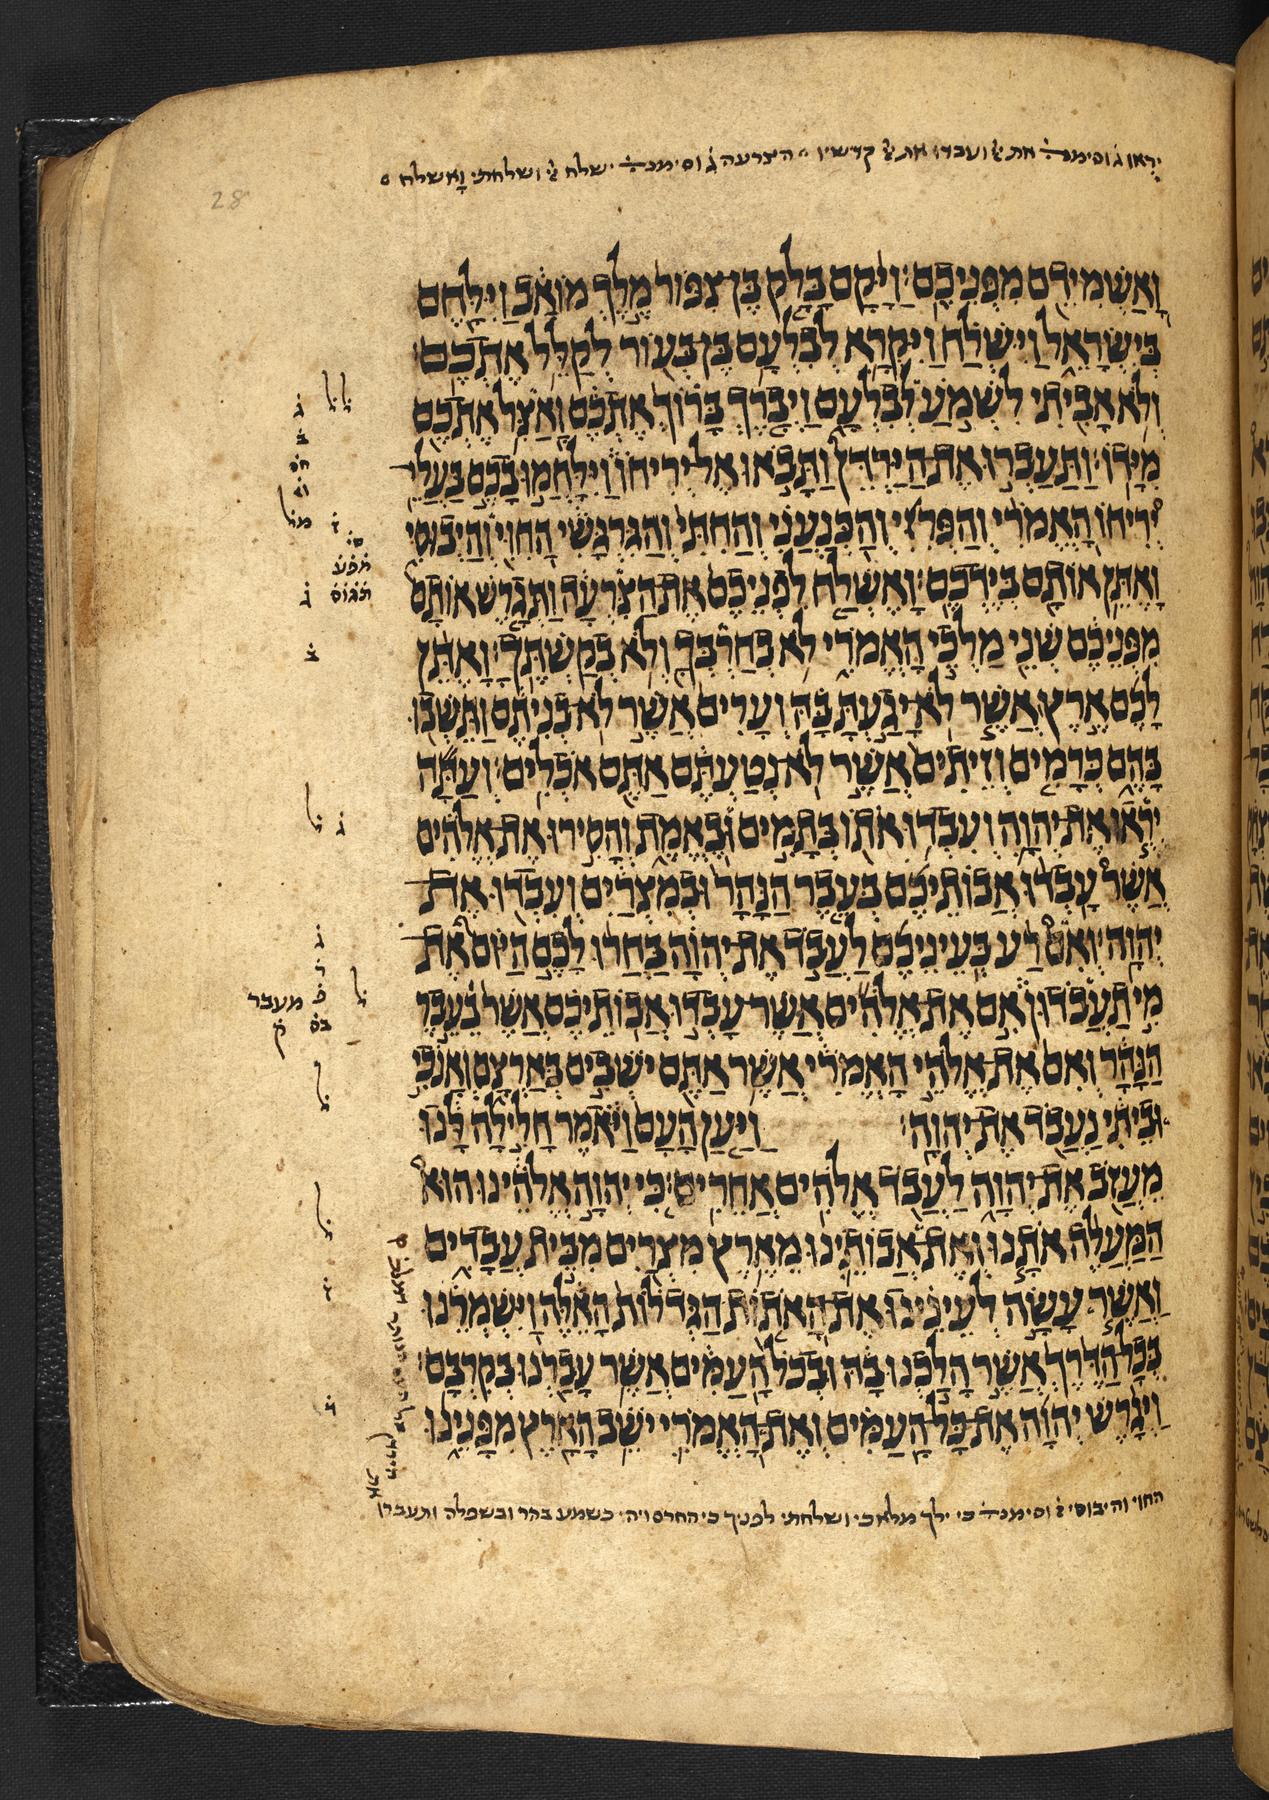 יראו ג׳ וסימנ׳ את י׳ ועבדו את י׳ קדשיו הצרעה ג׳ וסימנ׳ ישלח י׳ ושלחתי וָאשלח
28
וָאַשְׁמִידֵם מִפְּנֵיכֶם׃ וַיָּקָם בָּלָק בֶּן צִפּוֹר מֶלֶךְ מוֹאָב וַיִּלָּחֶם
בְּיִשְׂרָאֵל וַיִּשְׁלַח וַיִּקְרָא לְבִלְעָם בֶּן בְּעוֹר לְקַלֵּל אֶתְכֶם׃
וְלֹא אָבִיתִי לִשְׁמֹעַ לְבִלְעָם וַיְבָרֶךְ בָּרוֹךְ אֶתְכֶם וָאַצִּל אֶתְכֶם
מִיָּדוֹ׃ וַתַּעַבְרוּ אֶת הַיַּרְדֵּן וַתָּבֹאוּ אֶל יְרִיחוֹ וַיִּלָּחֲמוּ בָכֶם בַּעֲלֵי
יְרִיחוֹ הָאֱמֹרִי וְהַפְּרִזִּי וְהַכְּנַעֲנִי וְהַחִתִּי וְהַגִּרְגָּשִׁי הַחִוִּי וְהַיְבוּסִי
וָאֶתֵּן אוֹתָם בְּיֶדְכֶם׃ וָאֶשְׁלַח לִפְנֵיכֶם אֶת הַצִּרְעָה וַתְּגָרֶשׁ אוֹתָם
מִפְּנֵיכֶם שְׁנֵי מַלְכֵי הָאֱמֹרִי לֹא בְחַרְבְּךָ וְלֹא בְקַשְׁתֶּךָ׃ וָאֶתֵּן
לָכֶם אֶרֶץ אֲשֶׁר לֹא יָגַעְתָּ בָּהּ וְעָרִים אֲשֶׁר לֹא בְנִיתֶם וַתֵּשְׁבוּ
בָּהֶם כְּרָמִים וְזֵיתִים אֲשֶׁר לֹא נְטַעְתֶּם אַתֶּם אֹכְלִים׃ וְעַתָּה
יְראוּ אֶת יְהוָה וְעִבְדוּ אֹתוֹ בְּתָמִים וּבֶאֱמֶת וְהָסִירוּ אֶת אֱלֹהִים
אֲשֶׁר עָבְדוּ אֲבוֹתֵיכֶם בְּעֵבֶר הַנָּהָר וּבְמִצְרַיִם וְעִבְדוּ אֶת
יְהוָה׃ וְאִם רַע בְּעֵינֵיכֶם לַעֲבֹד אֶת יְהוָה בַּחֲרוּ לָכֶם הַיּוֹם אֶת
מִי תַעֲבֹדוּן אִם אֶת אֱלֹהִים אֲשֶׁר עָבְדוּ אֲבוֹתֵיכֶם אֲשֶׁר בְּעֵבֶר
הַנָּהָר וְאִם אֶת אֱלֹהֵי הָאֱמֹרִי אֲשֶׁר אַתֶּם יֹשְׁבִים בְּאַרְצָם וְאָנֹכִי
וּבֵיתִי נַעֲבֹד אֶת יְהוָה׃ וַיַּעַן הָעָם וַיֹּאמֶר חָלִילָה לָּנוּ
מֵעֲזֹב אֶת יְהוָה לַעֲבֹד אֱלֹהִים אֲחֵרִים׃ כִּי יְהוָה אֱלֹהֵינוּ הוּא
הַמַּעֲלֶה אֹתָנוּ וְאֶת אֲבוֹתֵינוּ מֵאֶרֶץ מִצְרַיִם מִבֵּית עֲבָדִים
וַאֲשֶׁר עָשָׂה לְעֵינֵינוּ אֶת הָאֹתוֹת הַגְּדֹלוֹת הָאֵלֶּה וַיִּשְׁמְרֵנוּ
בְּכָל הַדֶּרֶךְ אֲשֶׁר הָלַכְנוּ בָהּ וּבְכֹל הָעַמִּים אֲשֶׁר עָבַרְנוּ בְּקִרְבָּם׃
וַיְגָרֶשׁ יְהוָה אֶת כָּל הָעַמִּים וְאֶת הָאֱמֹרִי יֹשֵׁב הָאָרֶץ מִפָּנֵינוּ
ל ל
ג
ב
מל
ג
ב
ל ג
ג
ל
מעבר
ק
ל
ל
החוי והיבוסי וסימנ׳ כי ילך מלאכי ושלחתי לפניך כי החרם ויהי כשמע בהר ובשפלה ותעברו